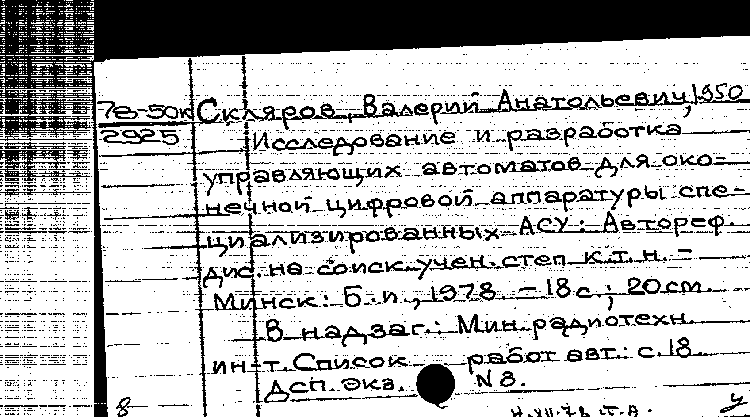 78-50к Скляров, Валерий Анатольевич, 1950
2925 Исследование и разработка
управляющих автоматов для око=
нечной цифровой аппаратуры спе-
циализированных АСУ: Автореф.
дис. на соиск. учен. степ к.т.н. -
Минск: Б.и., 1978. - 18 с.; 20 см.
В надзаг.: Мин. радиотехн.
ин-т. Список работ авт.: с. 18.
Дсп. Экз. N 8.
8